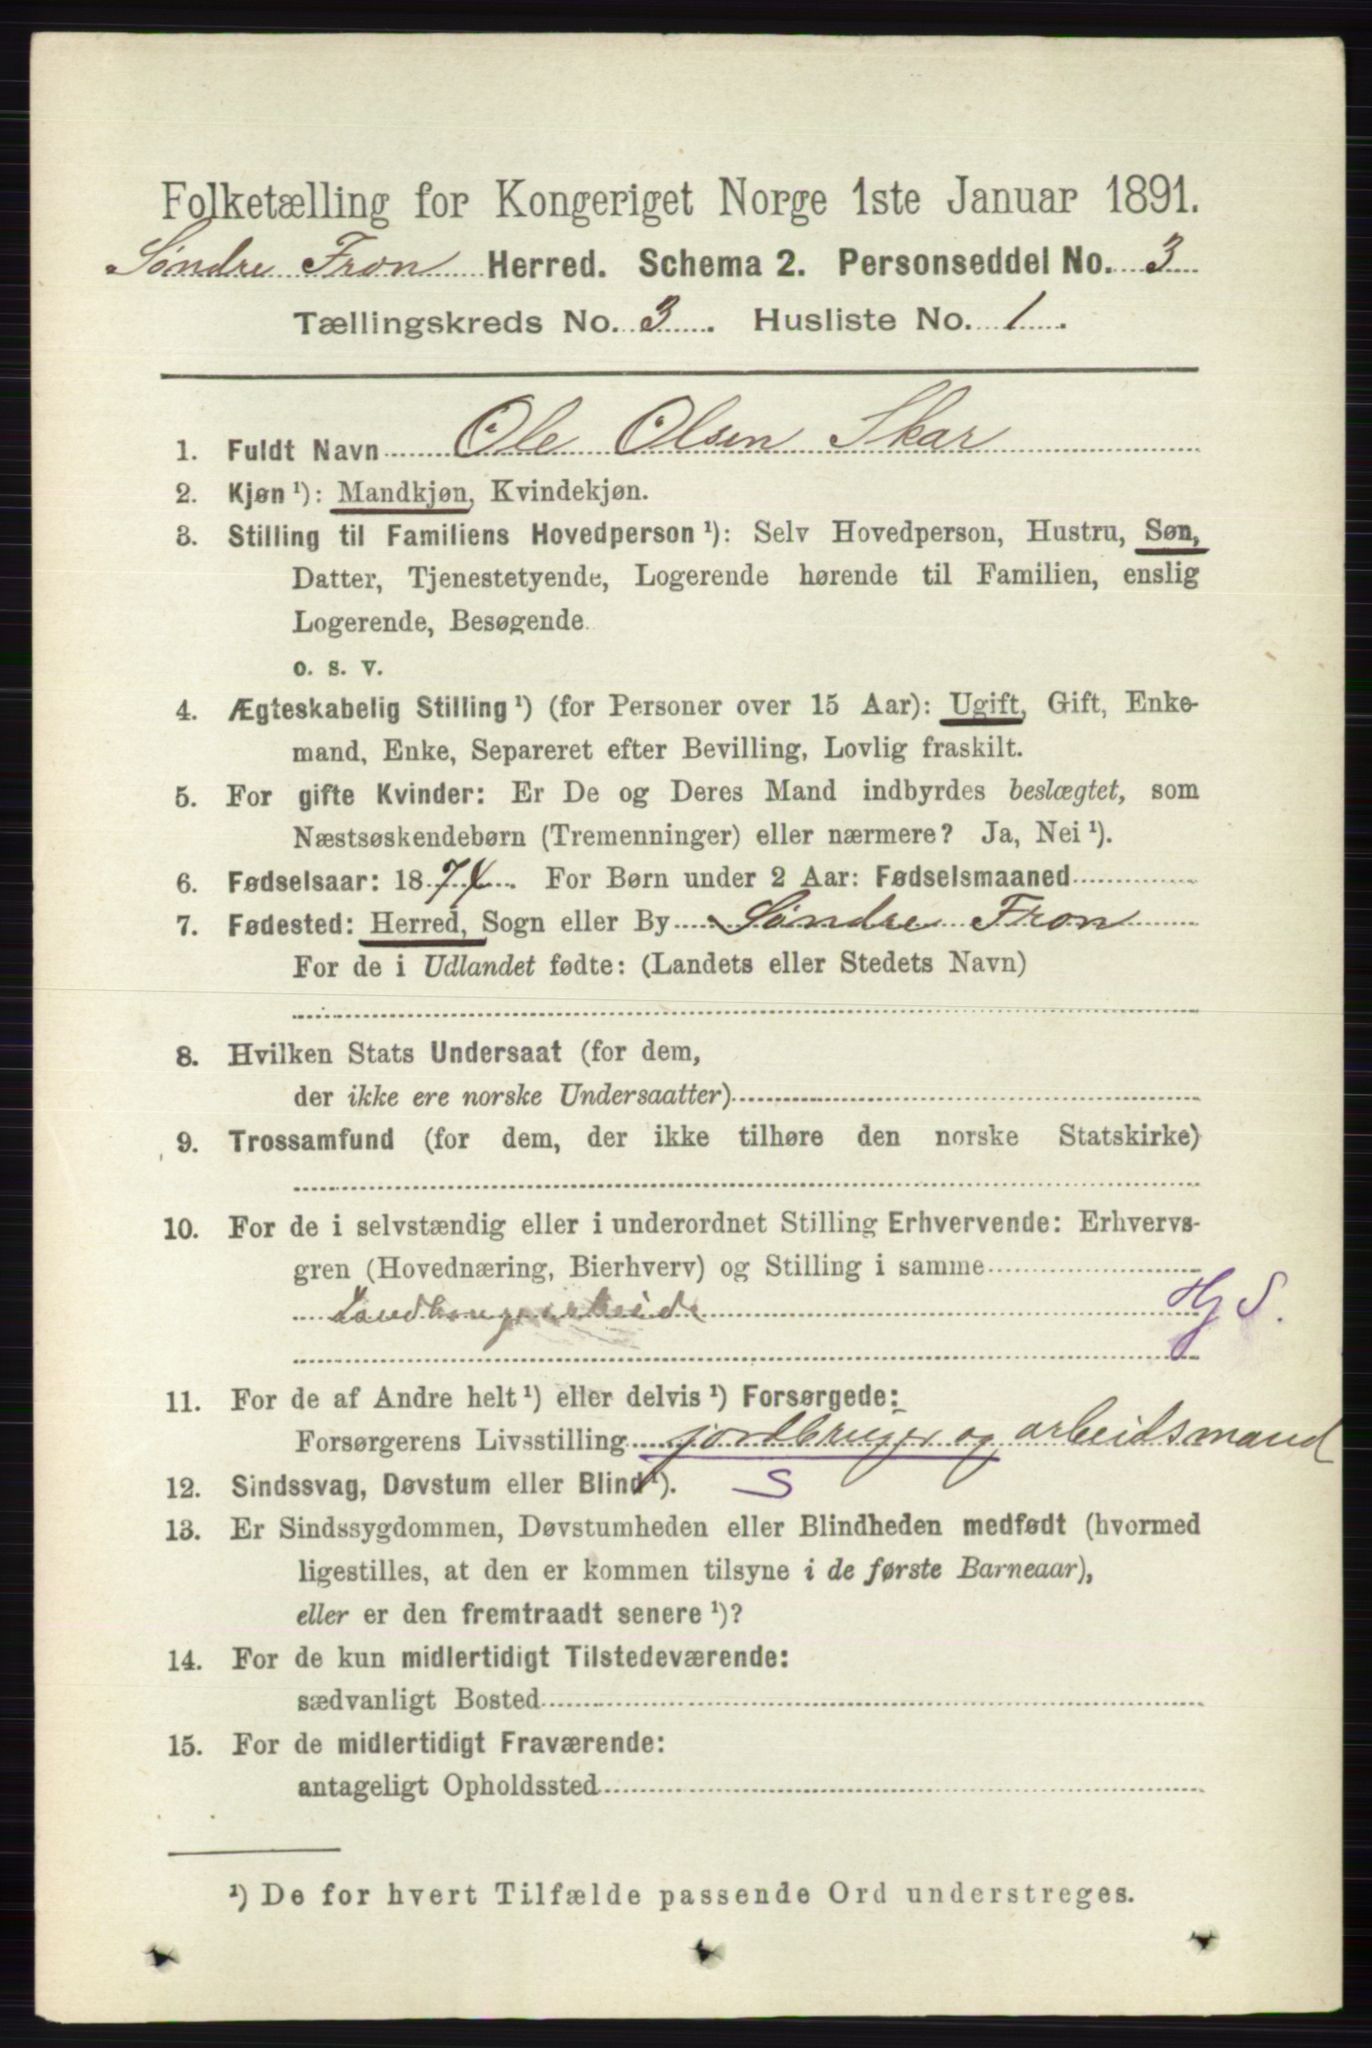 Folketælling for Kongeriget Norge 1ste Januar 1891.
Søndre Fron Herred. Schema 2. Personseddel No. 3
Tællingskreds No. 3. Husliste No. 1.
1. Fuldt Navn Ole Olsen Skar
2. Kjøn ¹): Mandkjøn, Kvindekjøn.
3. Stilling til Familiens Hovedperson ¹): Selv Hovedperson, Hustru, Søn,
Datter, Tjenestetyende, Logerende hørende til Familien, enslig
Logerende, Besøgende
o. s. v.
4. Ægteskabelig Stilling ¹) (for Personer over 15 Aar): Ugift, Gift, Enke-
mand, Enke, Separeret efter Bevilling, Lovlig fraskilt.
5. For gifte Kvinder: Er De og Deres Mand indbyrdes beslægtet, som
Næstsøskendebørn (Tremenninger) eller nærmere? Ja, Nei ¹).
6. Fødselsaar: 1874. For Børn under 2 Aar: Fødselsmaaned
7. Fødested: Herred, Sogn eller By Søndre Fron
For de i Udlandet fødte: (Landets eller Stedets Navn)
8. Hvilken Stats Undersaat (for dem,
der ikke ere norske Undersaatter)
9. Trossamfund (for dem, der ikke tilhøre den norske Statskirke)
10. For de i selvstændig eller i underordnet Stilling Erhvervende: Erhvervs-
gren (Hovednæring, Bierhverv) og Stilling i samme
Hj S.
11. For de af Andre helt ¹) eller delvis ¹) Forsørgede:
Forsørgerens Livsstilling jordbruger og arbeidsmand
12. Sindssvag, Døvstum eller Blind ¹). S
13. Er Sindssygdommen, Døvstumheden eller Blindheden medfødt (hvormed
ligestilles, at den er kommen tilsyne i de første Barneaar),
eller er den fremtraadt senere ¹)?
14. For de kun midlertidigt Tilstedeværende:
sædvanligt Bosted
15. For de midlertidigt Fraværende:
antageligt Opholdssted
¹) De for hvert Tilfælde passende Ord understreges.